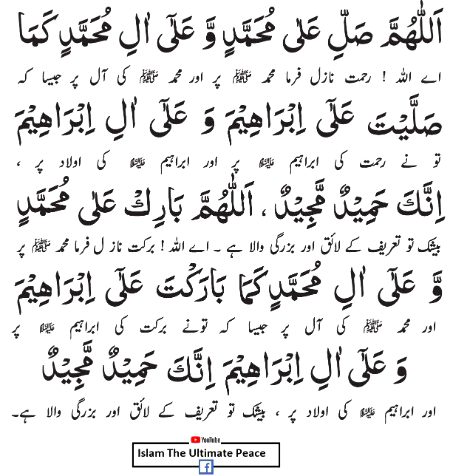 اَللّٰهُمَّ صَلِّ عَلٰى مُحَمَّدٍ وَّ عَلٰٓى اٰلِ مُحَمَّدٍ كَمَا
اے اللہ ! رحمت نازل فرما محمد ﷺ پر اور محمد ﷺ کی آل پر جیسا کہ
صَلَّيْتَ عَلٰٓى اِبْرَاهِيْمَ وَ عَلٰٓى اٰلِ اِبْرَاهِيْمَ
تو نے رحمت کی ابراہیم علیہ السلام پر اور ابراہیم علیہ السلام کی اولاد پر ،
اِنَّكَ حَمِيْدٌ مَّجِيْدٌ ، اَللّٰهُمَّ بَارِكْ عَلٰى مُحَمَّدٍ
بیشک تو تعریف کے لائق اور بزرگی والا ہے ۔ اے اللہ ! برکت نازل فرما محمد ﷺ پر
وَّ عَلٰٓى اٰلِ مُحَمَّدٍ كَمَا بَارَكْتَ عَلٰٓى اِبْرَاهِيْمَ
اور محمد ﷺ کی آل پر جیسا کہ تونے برکت کی ابراہیم علیہ السلام پر
وَ عَلٰٓى اٰلِ اِبْرَاهِيْمَ اِنَّكَ حَمِيْدٌ مَّجِيْدٌ
اور ابراہیم علیہ السلام کی اولاد پر ، بیشک تو تعریف کے لائق اور بزرگی والا ہے۔
YouTube
Islam The Ultimate Peace
f